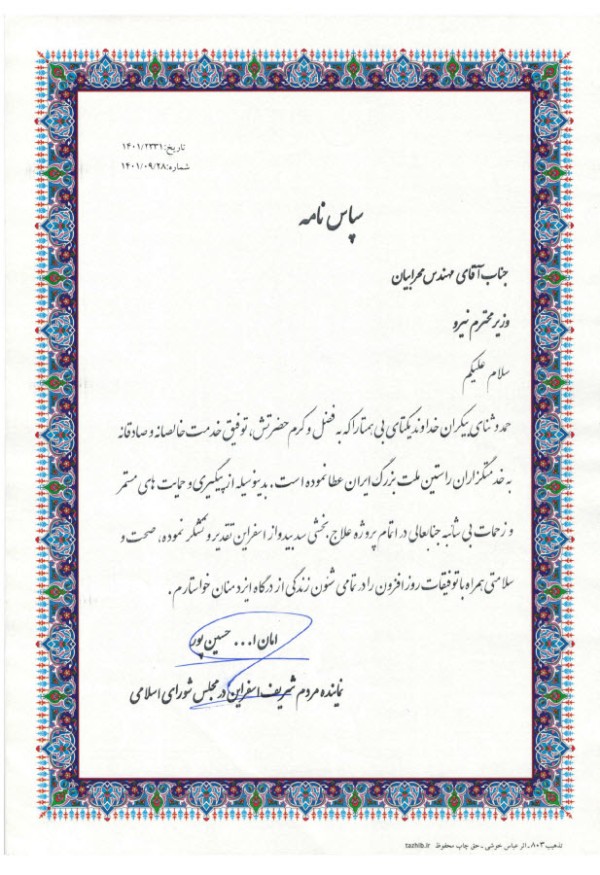 تاریخ:۱۴۰۱/۲۳۳۱
شماره:۱۴۰۱/۰۹/۲۸
سپاس نامه
جناب آقای مهندس محرابیان
وزیر محترم نیرو
سلام علیکم
حمد و ثنای بیکران خداوند یکتای بی همتا را که به فضل و کرم حضرتش، توفیق خدمت خالصانه و صادقانه
به خدمتگزاران راستین ملت بزرگ ایران عطا نموده است. بدینوسیله از پیگیری و حمایت های مستمر
و زحمات بی شائبه جنابعالی در اتمام پروژه علاج بخشی سد بیدواز اسفراین تقدیر و تشکر نموده، صحت و
سلامتی همراه با توفیقات روز افزون را در تمامی شئون زندگی از درگاه ایزد منان خواستارم.
امان ا... حسین پور
نماینده مردم شریف اسفراین در مجلس شورای اسلامی
تذهیب ۸۰۳ـ اثر عباس خوشی ـ حق چاپ محفوظ tazhib.ir